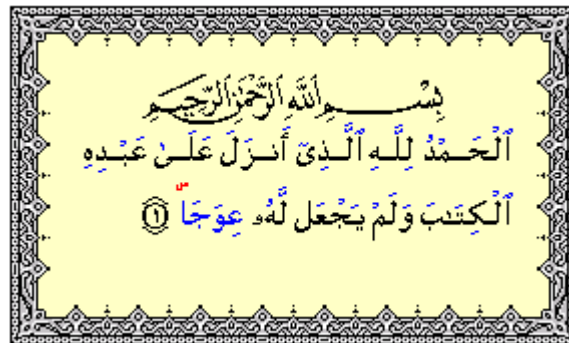 بِسْمِ ٱللَّهِ ٱلرَّحْمَٰنِ ٱلرَّحِيمِ
ٱلْحَمْدُ لِلَّهِ ٱلَّذِىٓ أَنزَلَ عَلَىٰ عَبْدِهِ
ٱلْكِتَٰبَ وَلَمْ يَجْعَل لَّهُۥ عِوَجَاۜ ١